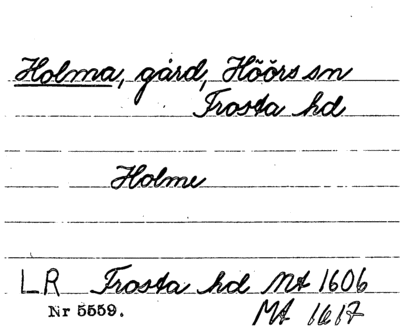 Holma, gård, Höörs sn
Frosta hd
Holme
LR Frosta hd Mt 1606
Nr 5559. Mt 1617